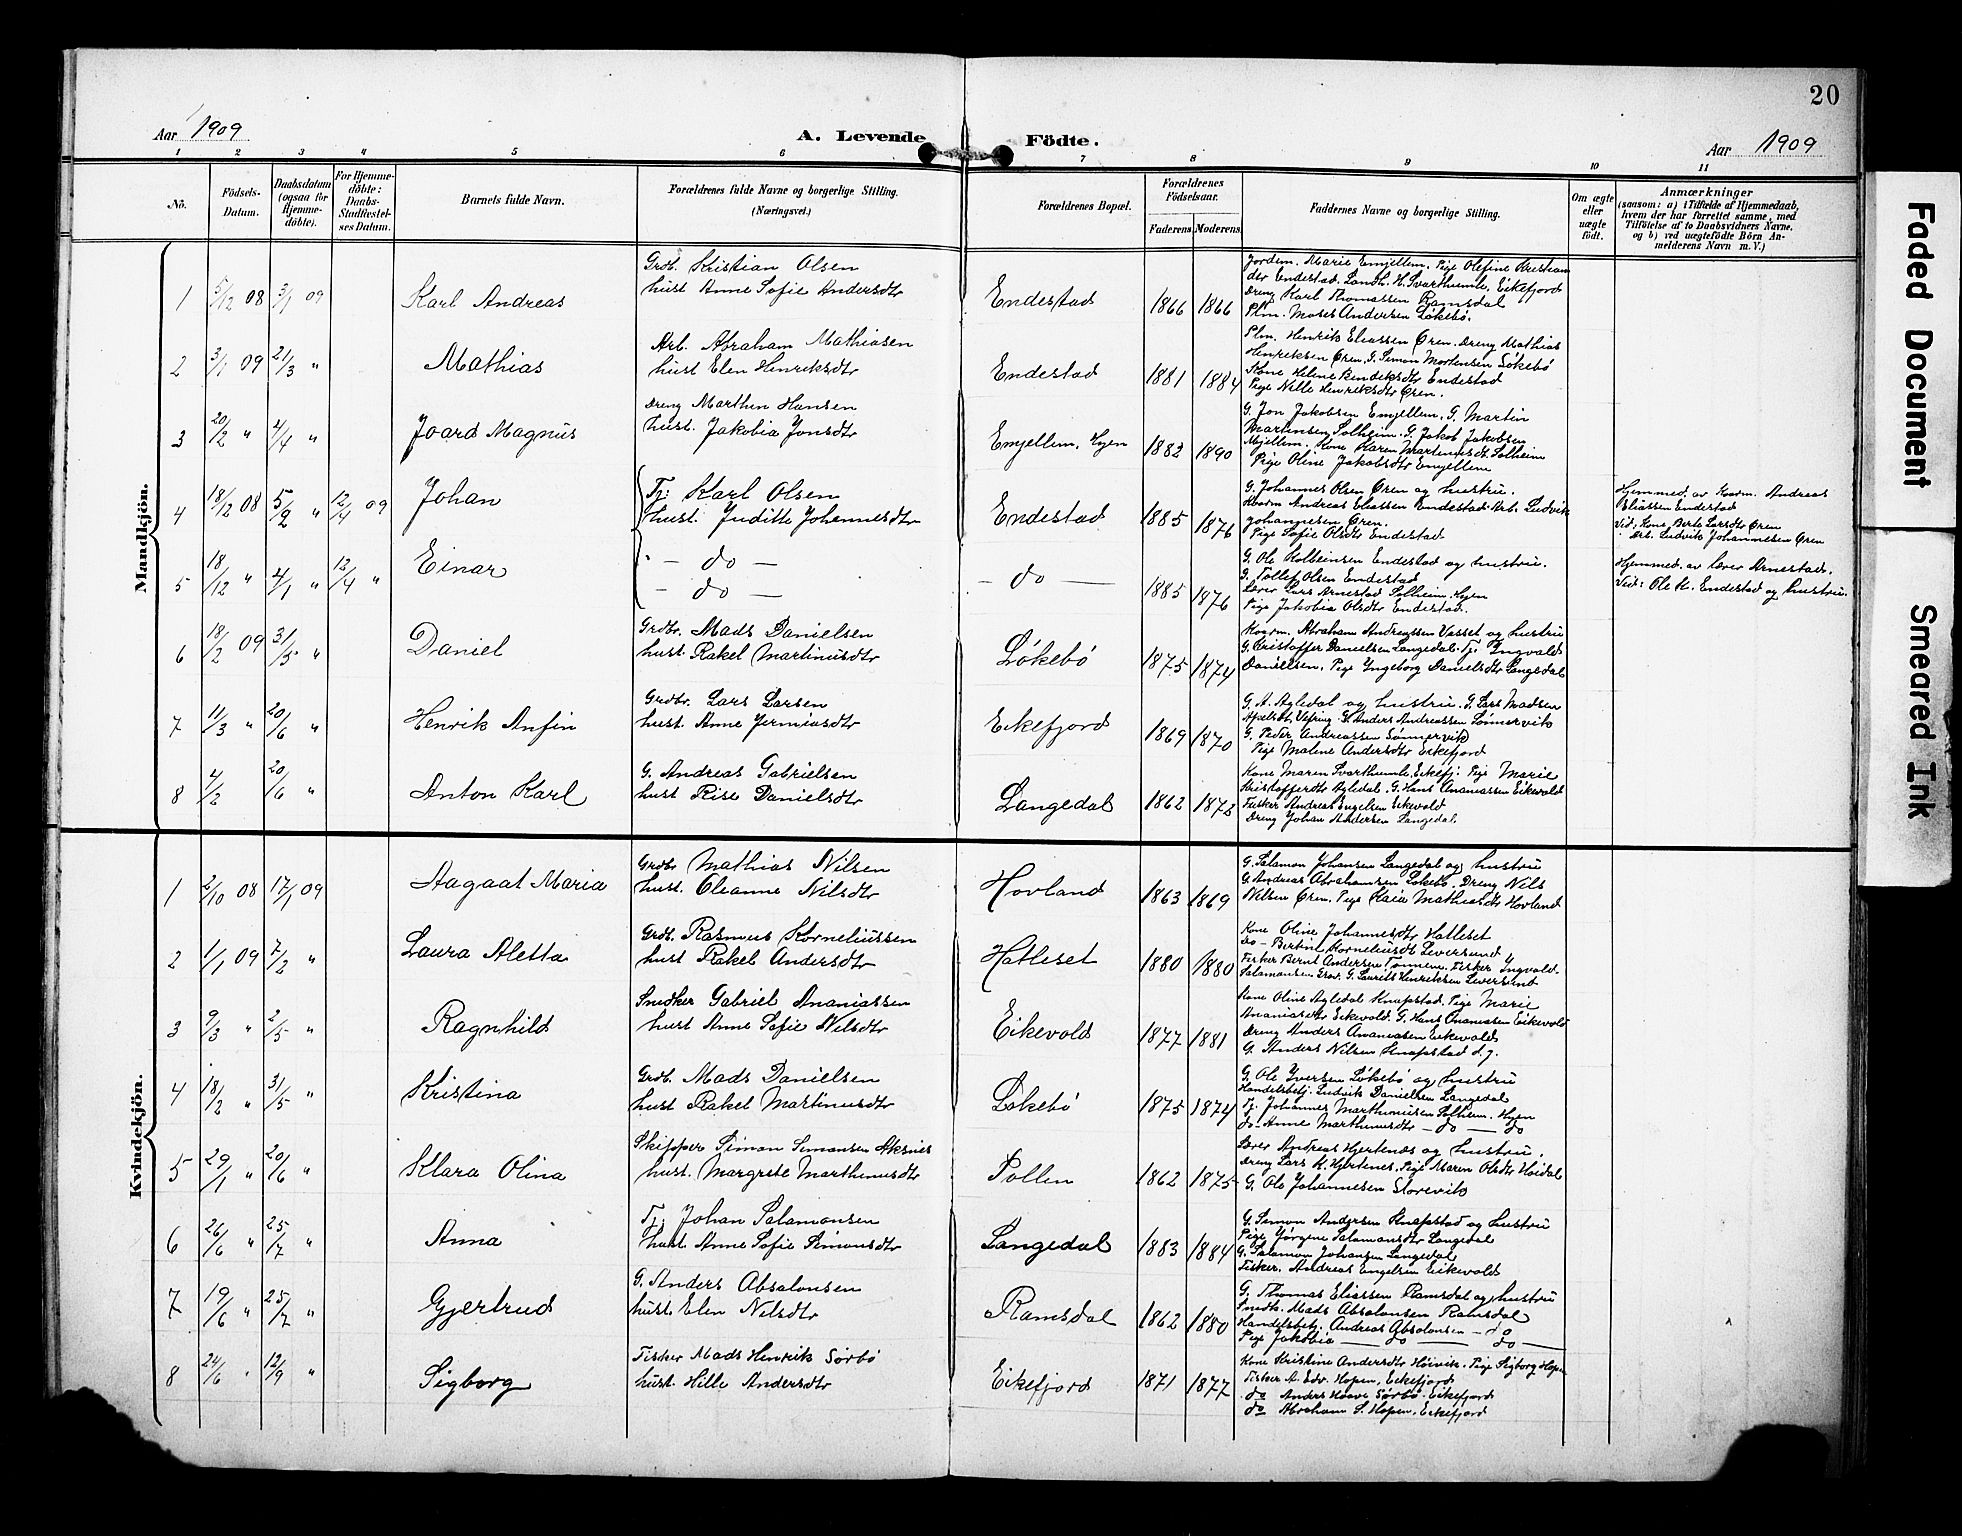 20
Aar 1909
A. Levende
Födte.
Aar 1909
1 2 3 4 5 6 7 8 9 10 11
No.
Födsels-
Datum.
Daabsdatum
(ogsaa for
Hjemme-
döbte).
For Hjemme-
döbte:
Daabs-
Stadfæstel-
ses Datum.
Barnets fulde Navn.
Forældrenes fulde Navne og borgerlige Stilling.
(Næringsvei.)
Forældrenes Bopæl.
Forældrenes
Födselsaar.
Faderens. Moderens.
Faddernes Navne og borgerlige Stilling.
Om ægte
eller
uægte
födt.
Anmærkninger
(saasom: a) i Tilfælde af Hjemmedaab,
hvem der har forrettet samme, med
Tilföielse af to Daabsvidners Navne,
og b) ved uægtefödte Börn An-
melderens Navn m. V.)
Mandkjön.
1 5/12 08 3/1 09 Karl Andreas
Grdb. Kristian Olsen
hust Anne Sofie Andersdtr
Endestad 1866 1866
Jordem. Marie Emjellem. Pige Olefine Kristian
der Endestad. Landh. H. Svarthumle, Eikefjord
Dreng Karl Thomassen Ramsdal
Plm. Moses Andersen Løkebø.
2 3/1 09 21/3 " Mathias
Arb. Abraham Mathiasen
hust Elen Henriksdtr
Endestad 1881 1884
Plm. Henrik Eliassen Øren. Dreng Mathias
Henriksen Øren. G. Simon Mortensen Løkebø
Kone Helene Bendiksdtr Endestad
Pige Nille Henriksdtr Øren.
3 20/2 " 4/4 " Joard Magnus
Dreng Marthin Hansen
hust. Jakobia Jonsdtr
Emjellem, Hyen 1882 1890
G. Jon Jakobsen Emjellem, G. Martin
Martinsen Solheim. G. Jakob Jakobsen
Mjellem. Kone Karen Martinusdt. Solheim
Pige Oline Jakobsdtr Emjellem
4 18/12 08 5/2 " 12/4 09 Johan
Tj: Karl Olsen
hust. Juditte Johannesdtr
Endestad 1885 1876
G. Johannes Olsen Øren og hustru.
Kaarm Andreas Eliassen Endestad. Arb. Ludvik
Johannesen Øren.
Pige Sofie Olsdtr Endestad
Hjemmed. av Kaarm. Andreas
Eliassen Endestad
Vid: Kone Berte Larsdtr Øren
" Arb. Ludvik Johannesen Øren
5 18/12 " 4/1 " 12/4 " Einar
" — do —
— do —
— do — 1885 1876
G. Ole Kolbeinsen Endestad og hustru.
G. Tollef Olsen Endestad
Lærer Lars Arnestad Solheim. Hyen
Pige Jakobia Olsdtr Endestad.
Hjemmed. av lærer Arnestad.
Vid: Ole K. Endestad og hustru.
6 18/2 09 31/5 " Daniel
Grdbr. Mads Danielsen
hust. Rakel Martinusdtr
Løkebø 1875 1874
Kaarm. Abraham Andreassen Vasset og hustru
G. Cristoffer Danielsen Langedal. Tj: Ingvald
Danielsen, Pige Ingeborg Danielsdtr Langedal
7 11/3 " 20/6 " Henrik Anfin
Grdbr. Lars Larsen
hust. Anne Jermiasdtr
Eikefjord 1869 1870
G. A. Agledal og hustru. G. Lars Madsen
Vefring. G. Anders Andreassen Sønnervik
G. Peder Andreassen Sønnervik
Pige Malene Andersdtr Eikefjord
8 4/2 20/6 " Anton Karl
G. Andreas Gabrielsen
hust Rise Danielsdtr
Langedal 1862 1873
Kone Maren Svarthumle, Eikefj: Pige Marie
Kristofferdtr Agledal. G. Hans Ananiassen Eikevold
Fisker Andreas Engelsen Eikevold
Dreng Johan Andersen Langedal.
Kvindekjön.
1 2/10 08 17/1 09 Aagaat Maria
Grdbr Mathias Nilsen
hust. Oleanne Nilsdtr
Hovland 1863 1869
G. Salamon Johansen Langedal og hustru
G. Andreas Abrahamsen Løkebø. Dreng Nils
Nilsen Øren. Pige Kaia Mathiasdtr Hovland
2 1/1 09 7/2 " Laura Aletta
Grdb. Rasmus Korneliussen
hust Rakel Andersdtr
Hatleset 1880 1880
Kone Oline Johannesdtr Hatleset
do – Bertine Korneliusdt Leversund
Fisker Bernt Andersen Tønnene. Fisker Ingvald
Salamonsen Grov. G. Laurits Henriksen Leversund
3 9/3 " 2/5 " Ragnhild
Snedker Gabriel Ananiassen
hust Anne Sofie Nilsdtr
Eikevold 1877 1881
Kone Oline Agledal Knapstad. Pige Marie
Ananiasdtr Eikevold. G. Hans Ananiasen Eikevold
Dreng Anders Ananiasen Eikevold
G. Anders Nilsen Knapstad d. y.
4 18/2 " 31/5 " Kristina
Grdb. Mads Danielsen
hust Rakel Martinusdtr
Løkebø 1875 1874
G. Ole Iversen Løkebø og hustru
Handelsbetj. Ludvik Danielsen Langedal
Tj. Johannes Marthinusen Solheim. Hyen
do. Anne Marthinusdtr – do – do
5 29/1 " 20/6 " Klara Olina
Skipper Simon Simonsen Aksnes
hust. Margrete Marthinusdtr
Pollen 1862 1875
Lærer Andreas Hjertenæs og hustru.
Dreng Lars K. Hjertenes. Pige Maren Olsdtr Høidal
G. Ole Johannesen Storevik
6 26/6 " 25/7 " Anna
Tj: Johan Salamonsen
hust. Anne Sofie Simonsdtr
Langedal 1883 1884
G. Simon Andersen Knapstad og hustru
Pige Jørgine Salamonsdtr Langedal
G. Salamon Johansen Langedal
Fisker. Andreas Engelsen Eikevold
7 19/6 " 25/7 " Gjertrud
G. Anders Absalonsen
hust. Elen Nilsdtr
Ramsdal 1862 1880
G. Thomas Eliassen Ramsdal og hustru
Snedk. Mads Absalonsen Ramsdal
Handelsbetj. Andreas Absalonsen – do
Pige Jakobia — do — do —
8 24/6 " 12/9 " Sigborg
Fisker Mads Henrik Sørbø
hust. Hille Andersdtr
Eikefjord 1871 1877
Kone Kristine Andersdtr Høivik. Pige Sigborg Hopen
Fisker A. Edv. Hopen, Eikefjord
do Anders Haave Sørbø. Eikefjord
do Abraham S. Hopen, Eikefjord
Faded Document
Smeared Ink